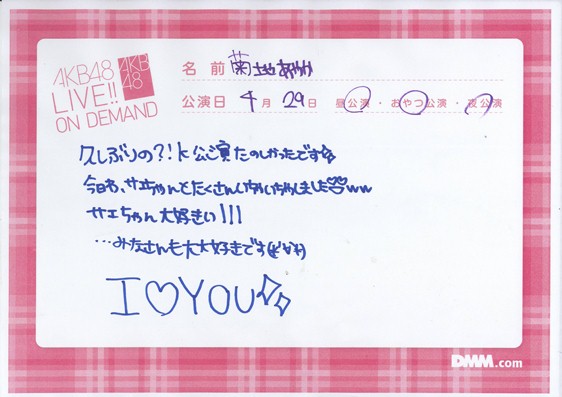 AKB48
LIVE!!
ON DEMAND
AKB
48
名前 菊地あやか
公演日 4月 29日 昼公演・おやつ公演・夜公演
久しぶりの?!K公演たのしかったです
今日も、サエちゃんとたくさんいちゃいちゃしました♡ww
サエちゃん大好きい!!!
…みなさんも大大好きです
I♡YOU
DMM.com